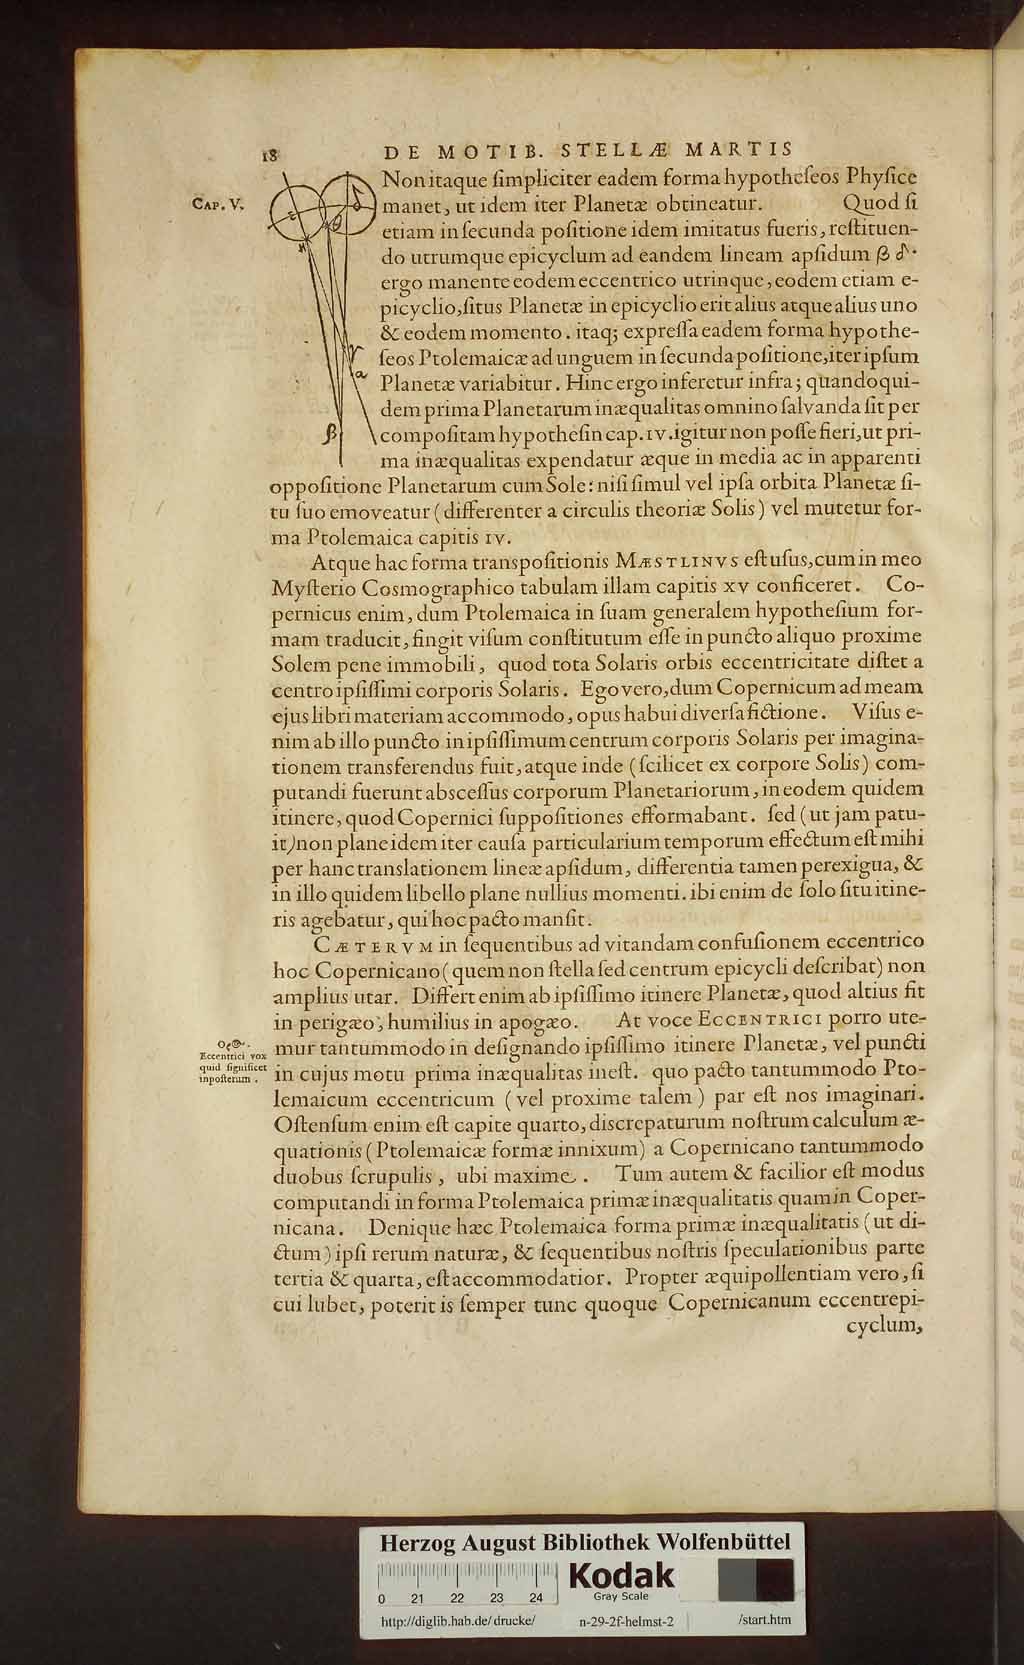 18 DE MOTIB. STELLÆ MARTIS
CAP. V.
Non itaque ſimpliciter eadem forma hypotheſeos Phyſice
manet, ut idem iter Planetæ obtineatur. Quod ſi
etiam in ſecunda poſitione idem imitatus fueris, reſtituen-
do utrumque epicyclum ad eandem lineam apſidum β δ.
ergo manente eodem eccentrico utrinque, eodem etiam e-
picyclio, ſitus Planetæ in epicyclio erit alius atque alius uno
& eodem momento. itaq; expreſſa eadem forma hypothe-
ſeos Ptolemaicæ ad unguem in ſecunda poſitione, iter ipſum
Planetæ variabitur. Hinc ergo inferetur infra; quandoqui-
dem prima Planetarum inæqualitas omnino ſalvanda ſit per
compoſitam hypotheſin cap. IV. igitur non poſſe fieri, ut pri-
ma inæqualitas expendatur æque in media ac in apparenti
oppoſitione Planetarum cum Sole: niſi ſimul vel ipſa orbita Planetæ ſi-
tu ſuo emoveatur (differenter a circulis theoriæ Solis) vel mutetur for-
ma Ptolemaica capitis IV.
Atque hac forma transpoſitionis MÆSTLINVS eſt uſus, cum in meo
Myſterio Cosmographico tabulam illam capitis XV conficeret. Co-
pernicus enim, dum Ptolemaica in ſuam generalem hypotheſium for-
mam traducit, fingit viſum conſtitutum eſſe in puncto aliquo proxime
Solem pene immobili, quod tota Solaris orbis eccentricitate diſtet a
centro ipſiſſimi corporis Solaris. Ego vero, dum Copernicum ad meam
ejus libri materiam accommodo, opus habui diverſa fictione. Viſus e-
nim ab illo puncto in ipſiſſimum centrum corporis Solaris per imagina-
tionem transferendus fuit, atque inde (ſcilicet ex corpore Solis) com-
putandi fuerunt absceſſus corporum Planetariorum, in eodem quidem
itinere, quod Copernici ſuppoſitiones efformabant. ſed (ut jam patu-
it) non plane idem iter cauſa particularium temporum effectum eſt mihi
per hanc translationem lineæ apſidum, differentia tamen perexigua, &
in illo quidem libello plane nullius momenti. ibi enim de ſolo ſitu itine-
ris agebatur, qui hoc pacto manſit.
CÆTERVM in ſequentibus ad vitandam confuſionem eccentrico
hoc Copernicano (quem non ſtella ſed centrum epicycli deſcribat) non
amplius utar. Differt enim ab ipſiſſimo itinere Planetæ, quod altius fit
in perigæo, humilius in apogæo. At voce ECCENTRICI porro ute-
Eccentrici vox
quid ſignificet
inpoſterum.
mur tantummodo in deſignando ipſiſſimo itinere Planetæ, vel puncti
in cujus motu prima inæqualitas ineſt. quo pacto tantummodo Pto-
lemaicum eccentricum (vel proxime talem) par eſt nos imaginari.
Oſtenſum enim eſt capite quarto, discrepaturum noſtrum calculum æ-
quationis (Ptolemaicæ formæ innixum) a Copernicano tantummodo
duobus ſcrupulis, ubi maxime. Tum autem & facilior eſt modus
computandi in forma Ptolemaica primæ inæqualitatis quam in Coper-
nicana. Denique hæc Ptolemaica forma primæ inæqualitatis (ut di-
ctum) ipſi rerum naturæ, & ſequentibus noſtris ſpeculationibus parte
tertia & quarta, eſt accommodatior. Propter æquipollentiam vero, ſi
cui lubet, poterit is ſemper tunc quoque Copernicanum eccentrepi-
cyclum,
Herzog August Bibliothek Wolfenbüttel
Kodak
Gray Scale
0 21 22 23 24
http://diglib.hab.de/drucke/ n-29-2f-helmst-2 /start.htm